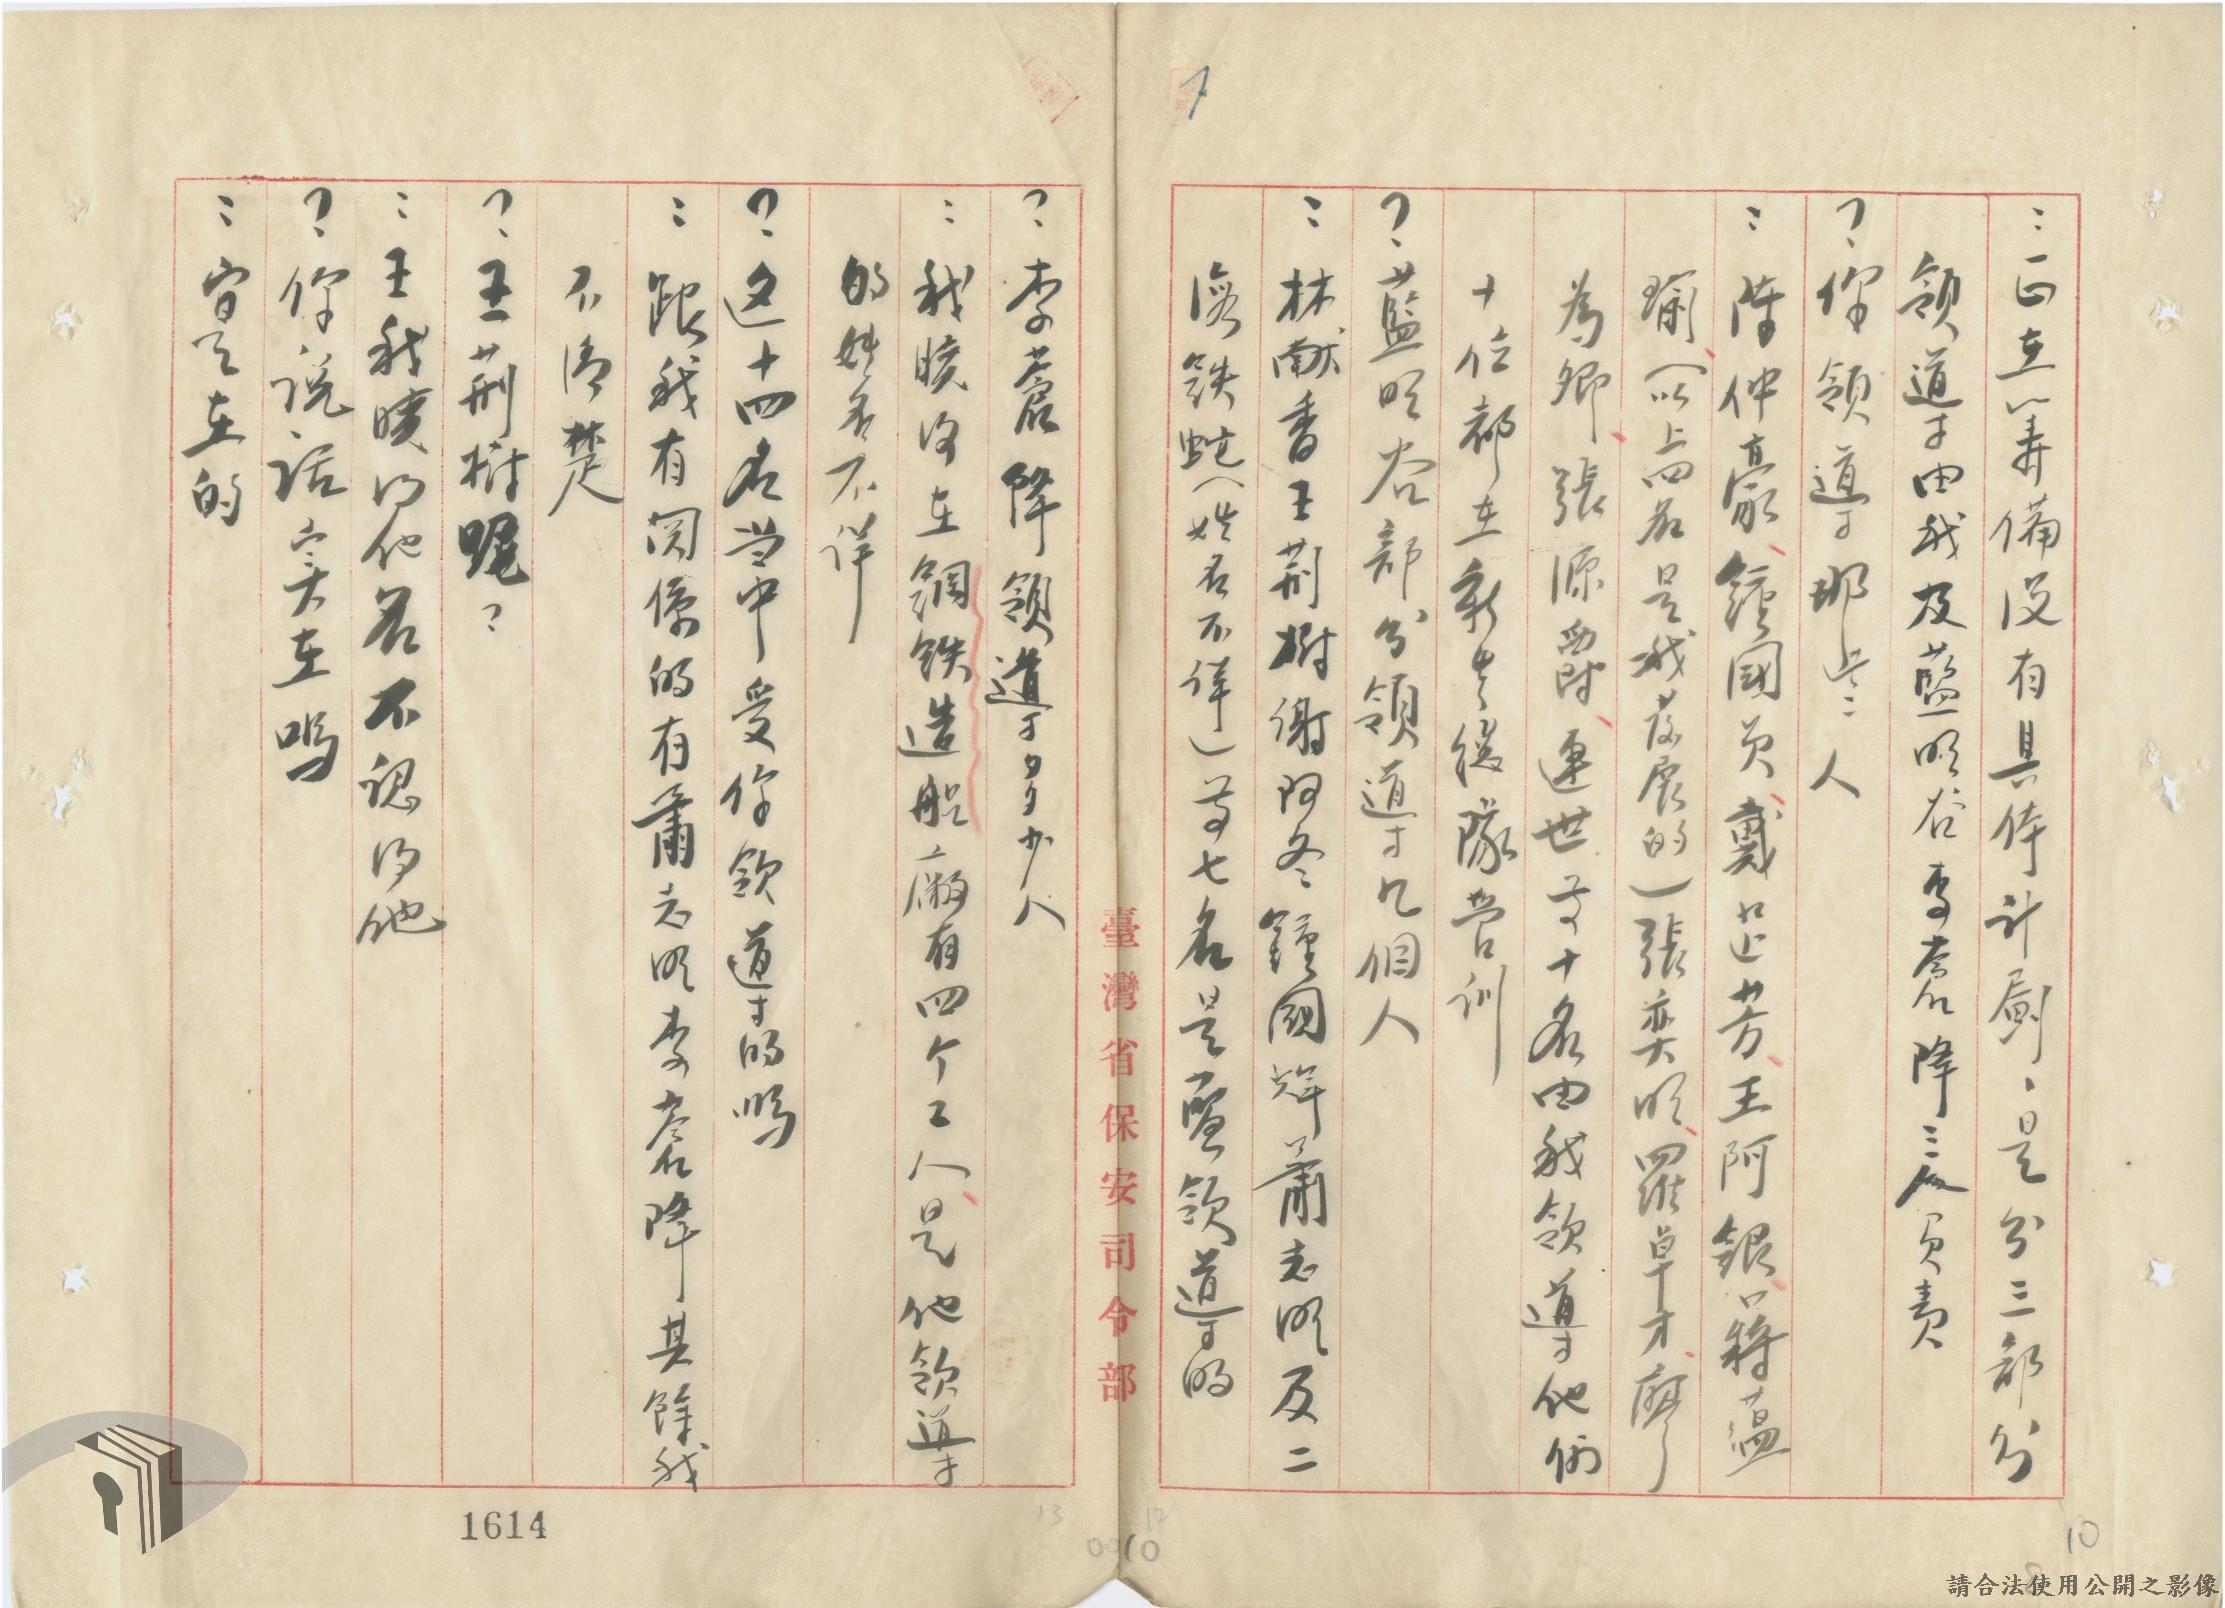 ：正在籌備沒有具体計劃、是分三部分
領導由我及藍明谷李蒼降三人負責
？你領導那些人
：陳仲豪、鍾國員、戴芷芳、王阿銀、蔣蘊
瑜（以上四名是我發展的）張奕明、羅卓才、廖
為卿、張源爵、連世等十名由我領導他們
十位都在新生總隊營訓
？藍明谷部分領導几個人
：林献香王荊樹謝阿冬鍾國輝蕭志明及二
等七名是藍領導的
（姓名不詳）
？李蒼降領導多少人
：我曉得在鋼鉄造船廠有四个工人是他領導
的姓名不詳
？这十四名当中受你領導的嗎
：跟我有関係的有蕭志明李蒼降其餘我
不清楚
？王荊樹呢？
：王我曉得他名不認得他
？你说话实在嗎
：实在的
臺灣省保安司令部
1614
0010
12
13
10
7
請合法使用公開之影像